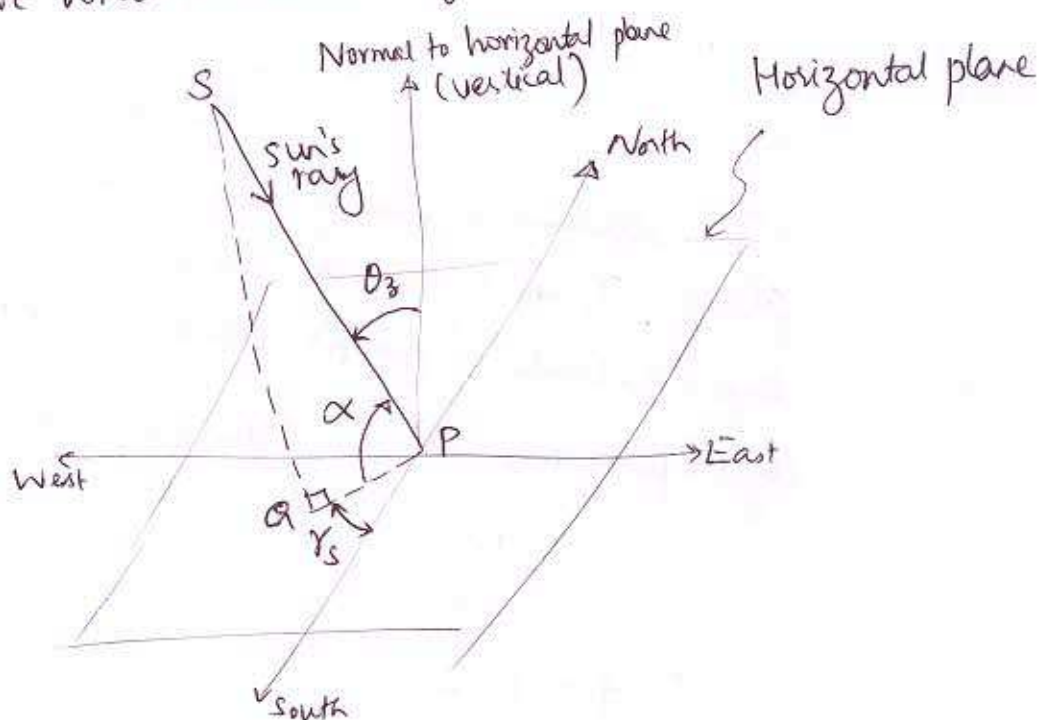 Normal to horizontal plane
(vertical)
Horizontal plane
S
Sun's
ray
North
θz
α
P
West
East
Q
γs
South